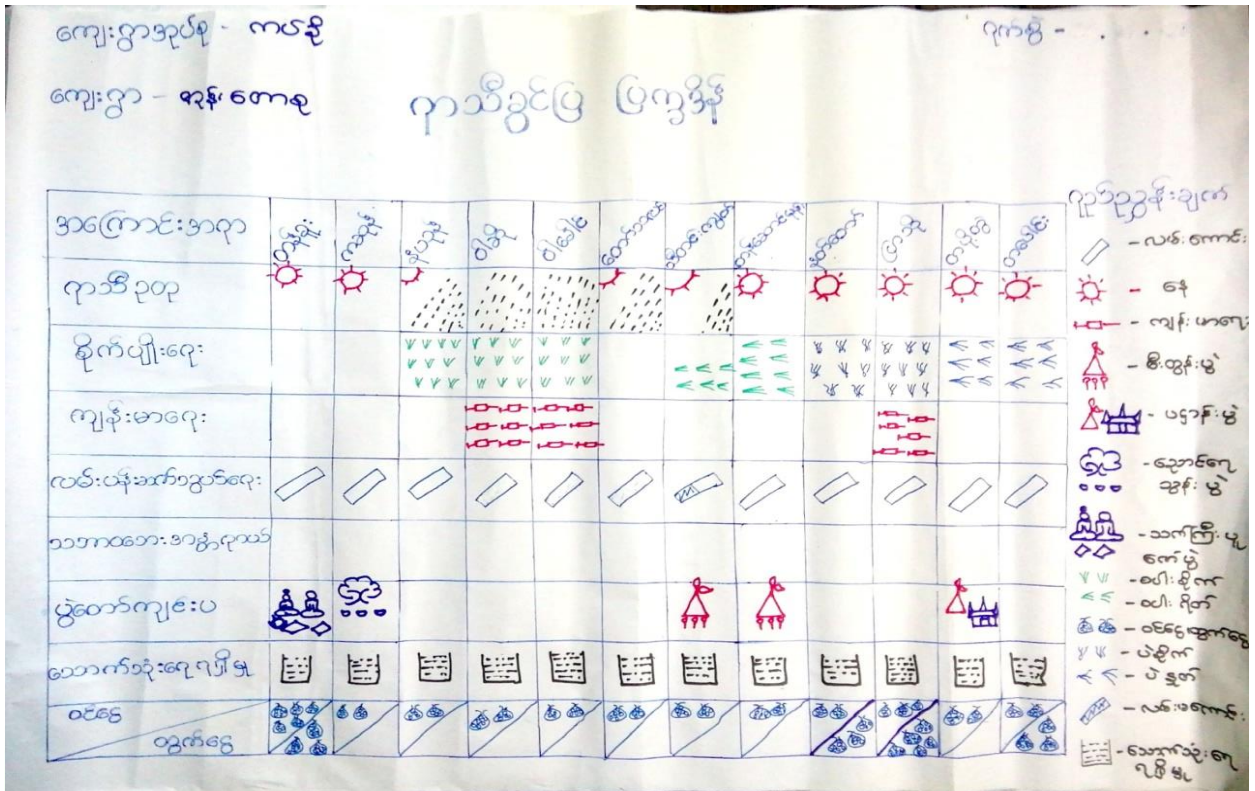 ကျေးရွာအုပ်စု - ကပ်နို
ရက်စွဲ - . . . .
ကျေးရွာ - ကုန်းတောစု
ရာသီခွင်ပြ ပြက္ခဒိန်
အကြောင်းအရာ တန်ခူး ကဆုန် နယုန် ဝါဆို ဝါခေါင် တော်သလင်း သီတင်းကျွတ် တန်ဆောင်မုန်း နတ်တော် ပြာသို တပို့တွဲ တပေါင်း
ရာသီဥတု
စိုက်ပျိုးရေး
ကျန်းမာရေး
လမ်းပန်းဆက်သွယ်ရေး
သဘာဝဘေးအန္တရာယ်
ပွဲတော်ကျင်းပ
သောက်သုံးရေရရှိမှု
ဝင်ငွေ
ထွက်ငွေ
ရည်ညွှန်းချက်
- လမ်းကောင်း
- နေ
- ကျန်းမာရေး
- မီးထွန်းပွဲ
- ပဌာန်းပွဲ
- ညောင်ရေ
သွန်းပွဲ
- သက်ကြီးပူ
ဇော်ပွဲ
- စပါးစိုက်
- စပါးရိတ်
- ဝင်ငွေထွက်ငွေ
- ပဲစိုက်
- ပဲနှုတ်
- လမ်းမကောင်း
- သောက်သုံးရေ
ရရှိမှု